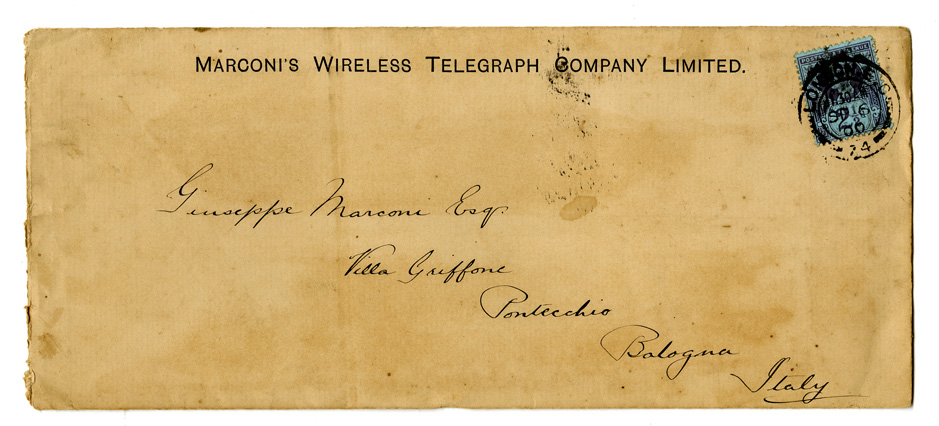 MARCONI'S WIRELESS TELEGRAPH COMPANY LIMITED.
LONDON. E.C.
SP 16
00
74
Giuseppe Marconi Esq.
Villa Griffone
Pontecchio
Bologna
Italy